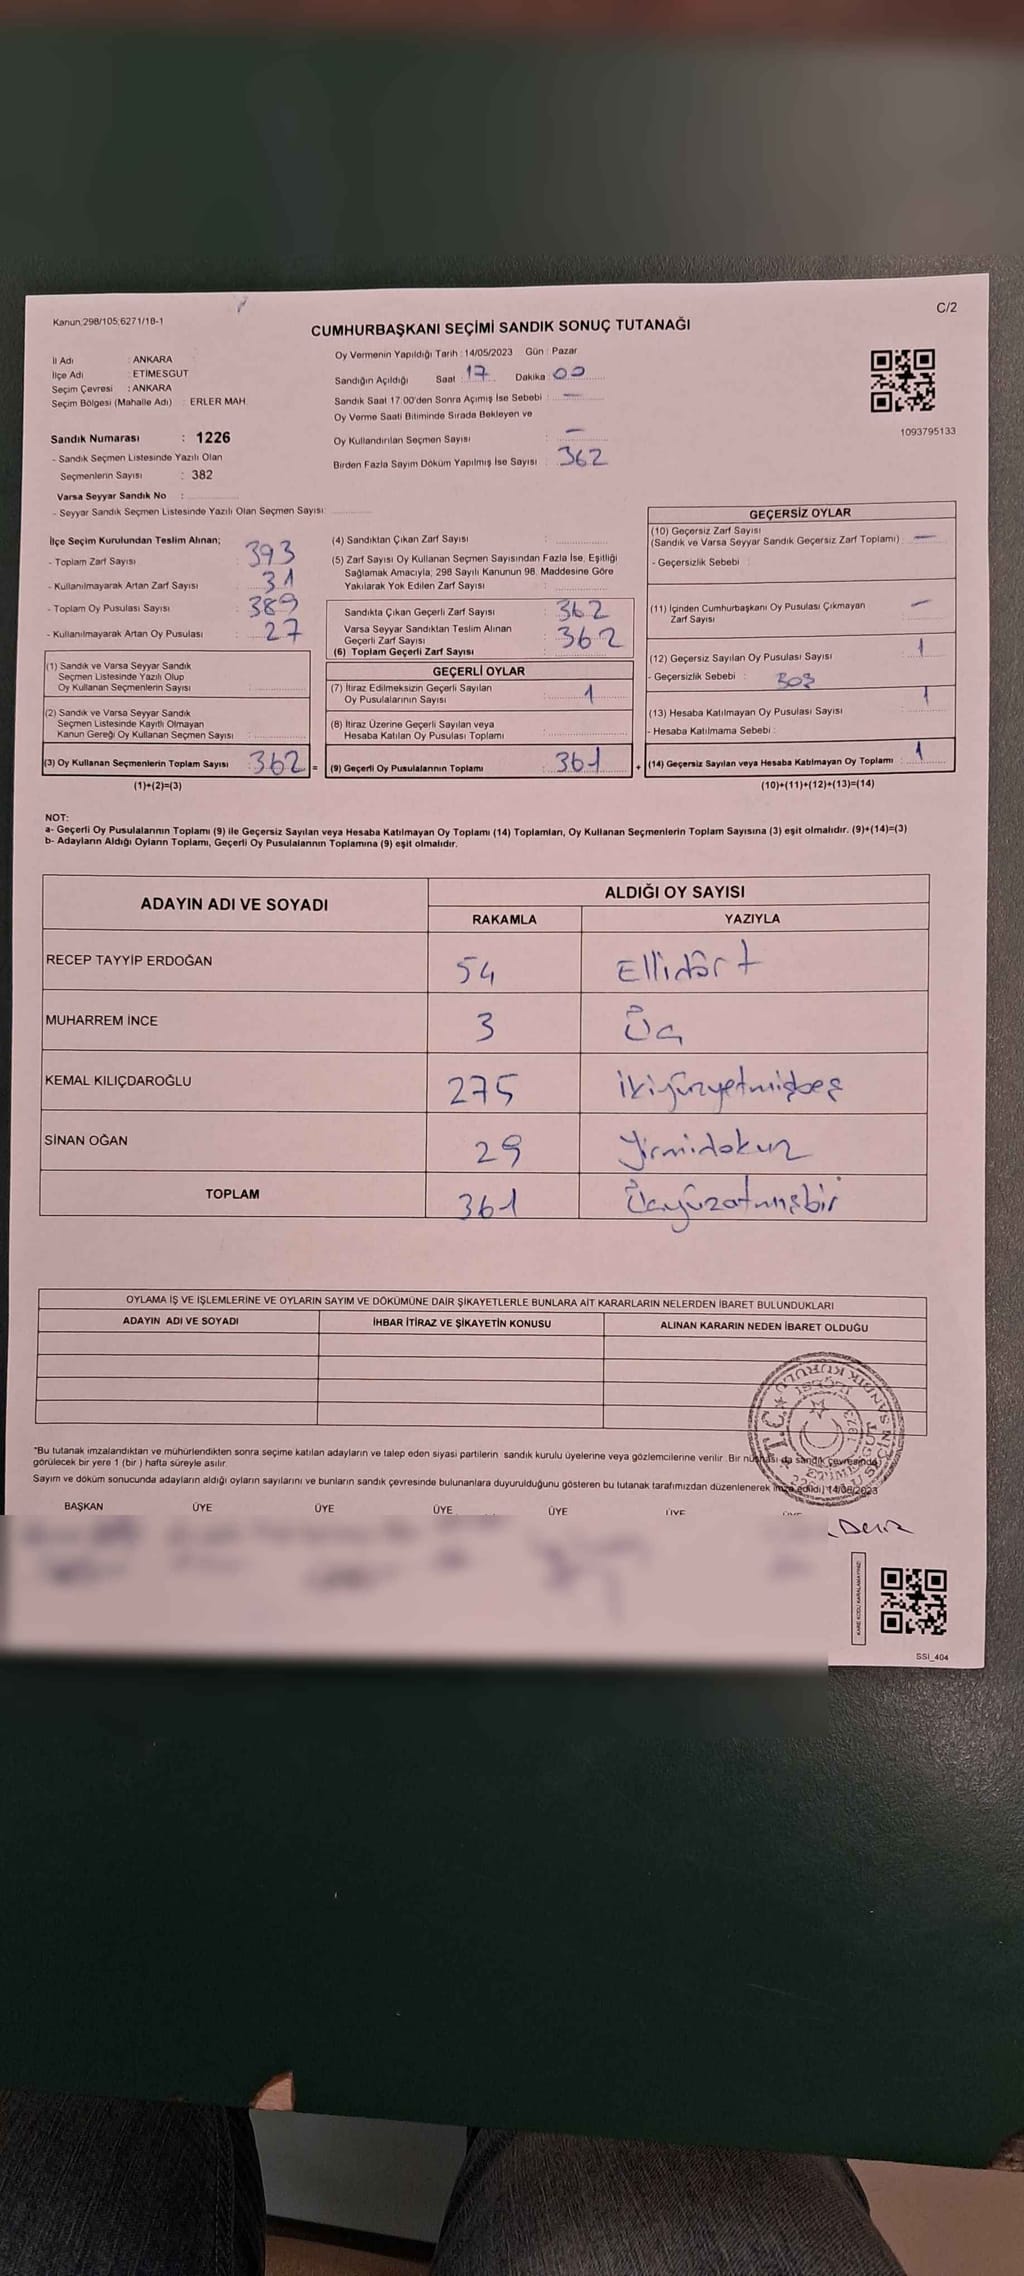 C/2
Kanun:298/105;6271/18-1
CUMHURBAŞKANI SEÇİMİ SANDIK SONUÇ TUTANAĞI
İl Adı : ANKARA
İlçe Adı : ETİMESGUT
Seçim Çevresi : ANKARA
Seçim Bölgesi (Mahalle Adı) : ERLER MAH.
Oy Vermenin Yapıldığı Tarih : 14/05/2023 Gün : Pazar
Sandığın Açıldığı Saat : 17 Dakika : 00
Sandık Saat 17:00'den Sonra Açımış İse Sebebi : —
Oy Verme Saati Bitiminde Sırada Bekleyen ve
Oy Kullandırılan Seçmen Sayısı : —
Birden Fazla Sayım Döküm Yapılmış İse Sayısı : 362
1093795133
Sandık Numarası : 1226
- Sandık Seçmen Listesinde Yazılı Olan
Seçmenlerin Sayısı : 382
Varsa Seyyar Sandık No :
- Seyyar Sandık Seçmen Listesinde Yazılı Olan Seçmen Sayısı:
İlçe Seçim Kurulundan Teslim Alınan;
- Toplam Zarf Sayısı : 393
- Kullanılmayarak Artan Zarf Sayısı : 31
- Toplam Oy Pusulası Sayısı : 389
- Kullanılmayarak Artan Oy Pusulası : 27
(1) Sandık ve Varsa Seyyar Sandık
Seçmen Listesinde Yazılı Olup
Oy Kullanan Seçmenlerin Sayısı :
(2) Sandık ve Varsa Seyyar Sandık
Seçmen Listesinde Kayıtlı Olmayan
Kanun Gereği Oy Kullanan Seçmen Sayısı :
(3) Oy Kullanan Seçmenlerin Toplam Sayısı : 362 =
(1)+(2)=(3)
(4) Sandıktan Çıkan Zarf Sayısı :
(5) Zarf Sayısı Oy Kullanan Seçmen Sayısından Fazla İse, Eşitliği
Sağlamak Amacıyla; 298 Sayılı Kanunun 98. Maddesine Göre
Yakılarak Yok Edilen Zarf Sayısı :
Sandıkta Çıkan Geçerli Zarf Sayısı : 362
Varsa Seyyar Sandıktan Teslim Alınan
Geçerli Zarf Sayısı : 362
(6) Toplam Geçerli Zarf Sayısı
GEÇERLİ OYLAR
(7) İtiraz Edilmeksizin Geçerli Sayılan
Oy Pusulalarının Sayısı : 1
(8) İtiraz Üzerine Geçerli Sayılan veya
Hesaba Katılan Oy Pusulası Toplamı :
(9) Geçerli Oy Pusulalarının Toplamı : 361 +
GEÇERSİZ OYLAR
(10) Geçersiz Zarf Sayısı
(Sandık ve Varsa Seyyar Sandık Geçersiz Zarf Toplamı) : —
- Geçersizlik Sebebi :
(11) İçinden Cumhurbaşkanı Oy Pusulası Çıkmayan
Zarf Sayısı : —
(12) Geçersiz Sayılan Oy Pusulası Sayısı : 1
- Geçersizlik Sebebi :
(13) Hesaba Katılmayan Oy Pusulası Sayısı : 1
- Hesaba Katılmama Sebebi :
(14) Geçersiz Sayılan veya Hesaba Katılmayan Oy Toplamı : 1
(10)+(11)+(12)+(13)=(14)
NOT:
a- Geçerli Oy Pusulalarının Toplamı (9) ile Geçersiz Sayılan veya Hesaba Katılmayan Oy Toplamı (14) Toplamları, Oy Kullanan Seçmenlerin Toplam Sayısına (3) eşit olmalıdır. (9)+(14)=(3)
b- Adayların Aldığı Oyların Toplamı, Geçerli Oy Pusulalarının Toplamına (9) eşit olmalıdır.
ADAYIN ADI VE SOYADI
ALDIĞI OY SAYISI
RAKAMLA YAZIYLA
RECEP TAYYİP ERDOĞAN 54 Ellidört
MUHARREM İNCE 3 Üç
KEMAL KILIÇDAROĞLU 275 ikiyüzyetmişbeş
SİNAN OĞAN 29 Yirmidokuz
TOPLAM 361 Üçyüzatmışbir
OYLAMA İŞ VE İŞLEMLERİNE VE OYLARIN SAYIM VE DÖKÜMÜNE DAİR ŞİKAYETLERLE BUNLARA AİT KARARLARIN NELERDEN İBARET BULUNDUKLARI
ADAYIN ADI VE SOYADI İHBAR İTİRAZ VE ŞİKAYETİN KONUSU ALINAN KARARIN NEDEN İBARET OLDUĞU
*Bu tutanak imzalandıktan ve mühürlendikten sonra seçime katılan adayların ve talep eden siyasi partilerin sandık kurulu üyelerine veya gözlemcilerine verilir. Bir nüshası da sandık çevresinde
görülecek bir yere 1 (bir ) hafta süreyle asılır.
Sayım ve döküm sonucunda adayların aldığı oyların sayılarını ve bunların sandık çevresinde bulunanlara duyurulduğunu gösteren bu tutanak tarafımızdan düzenlenerek imza edildi. 14/05/2023
BAŞKAN ÜYE ÜYE ÜYE ÜYE ÜYE ÜYE
Deniz
KARE KODU KARALAMAYINIZ!
SSI_404